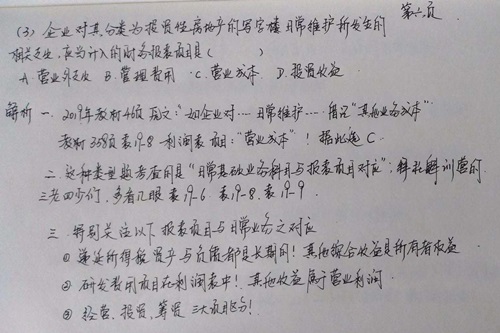 第六页
(3) 企业对其分类为投资性房地产的写字楼日常维护所发生的
相关支出,应当计入的财务报表项目是( )
A. 营业外支出 B. 管理费用 C. 营业成本 D. 投资收益
解析 一、2019年教材 页原文:“如企业对…日常维护…借记“其他业务成本”
教材358页表19-8 利润表项目:“营业成本”!据此选C.
二、这种类型题考查的是“日常基础业务科目与报表项目对应”:科
三老四少们,多看几眼表19-6、表19-8、表19-9.
三、特别关注以下报表项目与日常业务之对应
① 递延所得税资产与负债都是长期的!其他综合收益是所有者权益
② 研发费用项目在利润表中!其他收益属于营业利润.
③ 经营、投资、筹资三大项目区分!